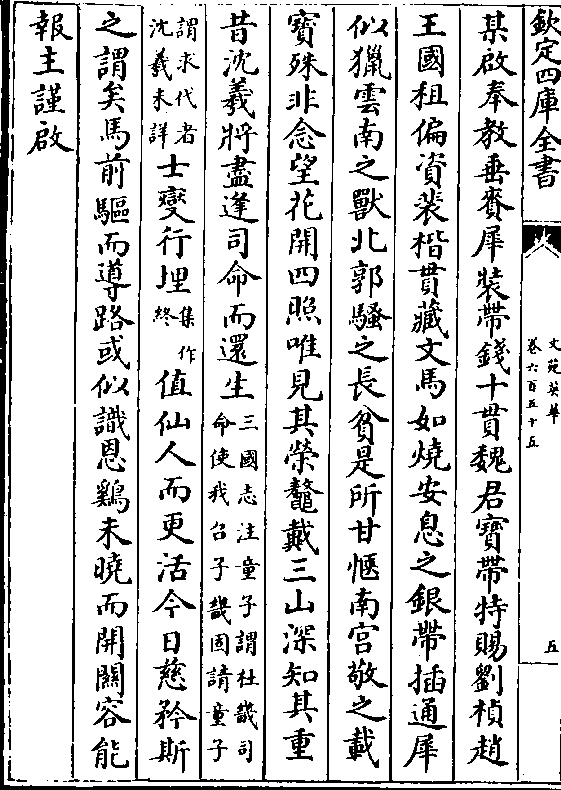 欽定四庫全書
文苑英華
卷六百五十五
五
某啟奉教垂賚犀裝帶錢十貫魏君寶帶特賜劉楨趙
王國租偏資裴楷貫藏文馬如燒安息之銀帶插通犀
似獵雲南之獸北郭騷之長貧是所甘愜南宫敬之載
寳殊非念望花開四照唯見其榮鼇戴三山深知其重
昔沈羲將盡逢司命而還生三國志注童子謂杜畿司
命使我召子畿固請童子
謂求代者
沈羲未詳士燮行埋集作
終值仙人而更活今日慈矜斯
之謂矣馬前驅而導路或似識恩鷄未曉而開關容能
報主謹啟